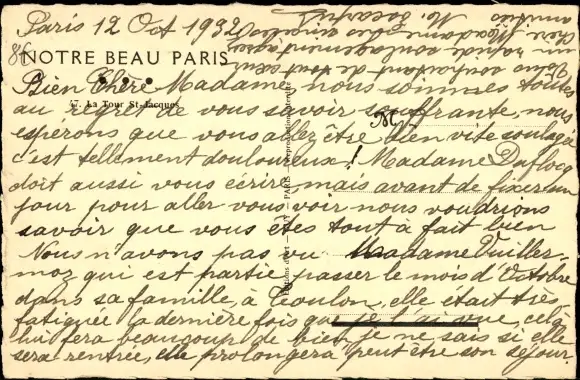 Paris 12 Oct 1932
NOTRE BEAU PARIS
Bien Chère Madame, nous sommes toutes
47. La Tour St-Jacques
au regret de vous savoir souffrante, nous
M
espérons que vous allez être bien vite soulagée
c'est tellement douloureux! Madame Duflocq
doit aussi vous écrire, mais avant de fixer un
jour pour aller vous voir nous voudrions
savoir que vous êtes tout à fait bien
Nous n'avons pas vu Madame Vuiller-
moz qui est partie passer le mois d'Octobre
dans sa famille, à Toulon, elle était très
fatiguée la dernière fois que je l'ai vue, celà
lui fera beaucoup de bien je ne sais si elle
sera rentrée, elle prolongera peut être son séjour.
Vous souhaitant de tout cœur
un rapide soulagement agréez
chère Madame mes sincères
amitiés M.